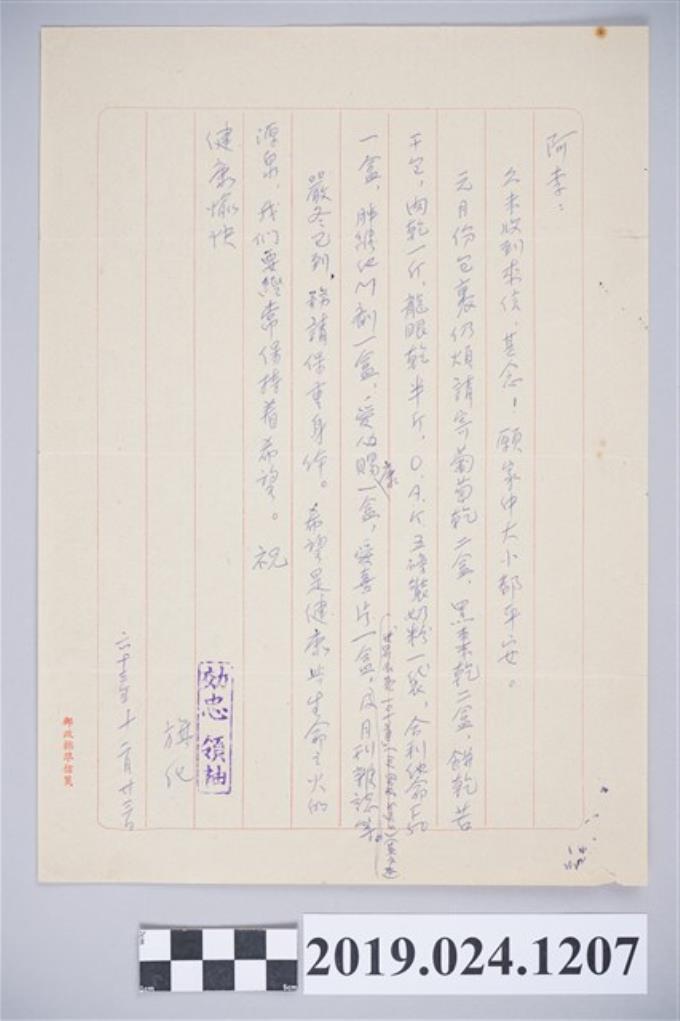 阿李：
久未收到來信，甚念！願家中大小都平安。
元月份包裹仍煩請寄葡萄乾二盒，黑棗乾二盒，餅乾若
干包，肉乾一斤，龍眼乾半斤，O.A.K五磅裝奶粉一袋，合利他命F50
一盒，肝能他川剤一盒，愛仙賜康一盒，愛喜片一盒，及月刊雜誌等。
嚴冬已到，務請保重身体。希望是健康與生命之火的
源泉，我们要經常保持着希望。祝
健康愉快
效忠領袖
旗化
六十三年十二月廿三日
郵政標準信箋
2019.024.1207